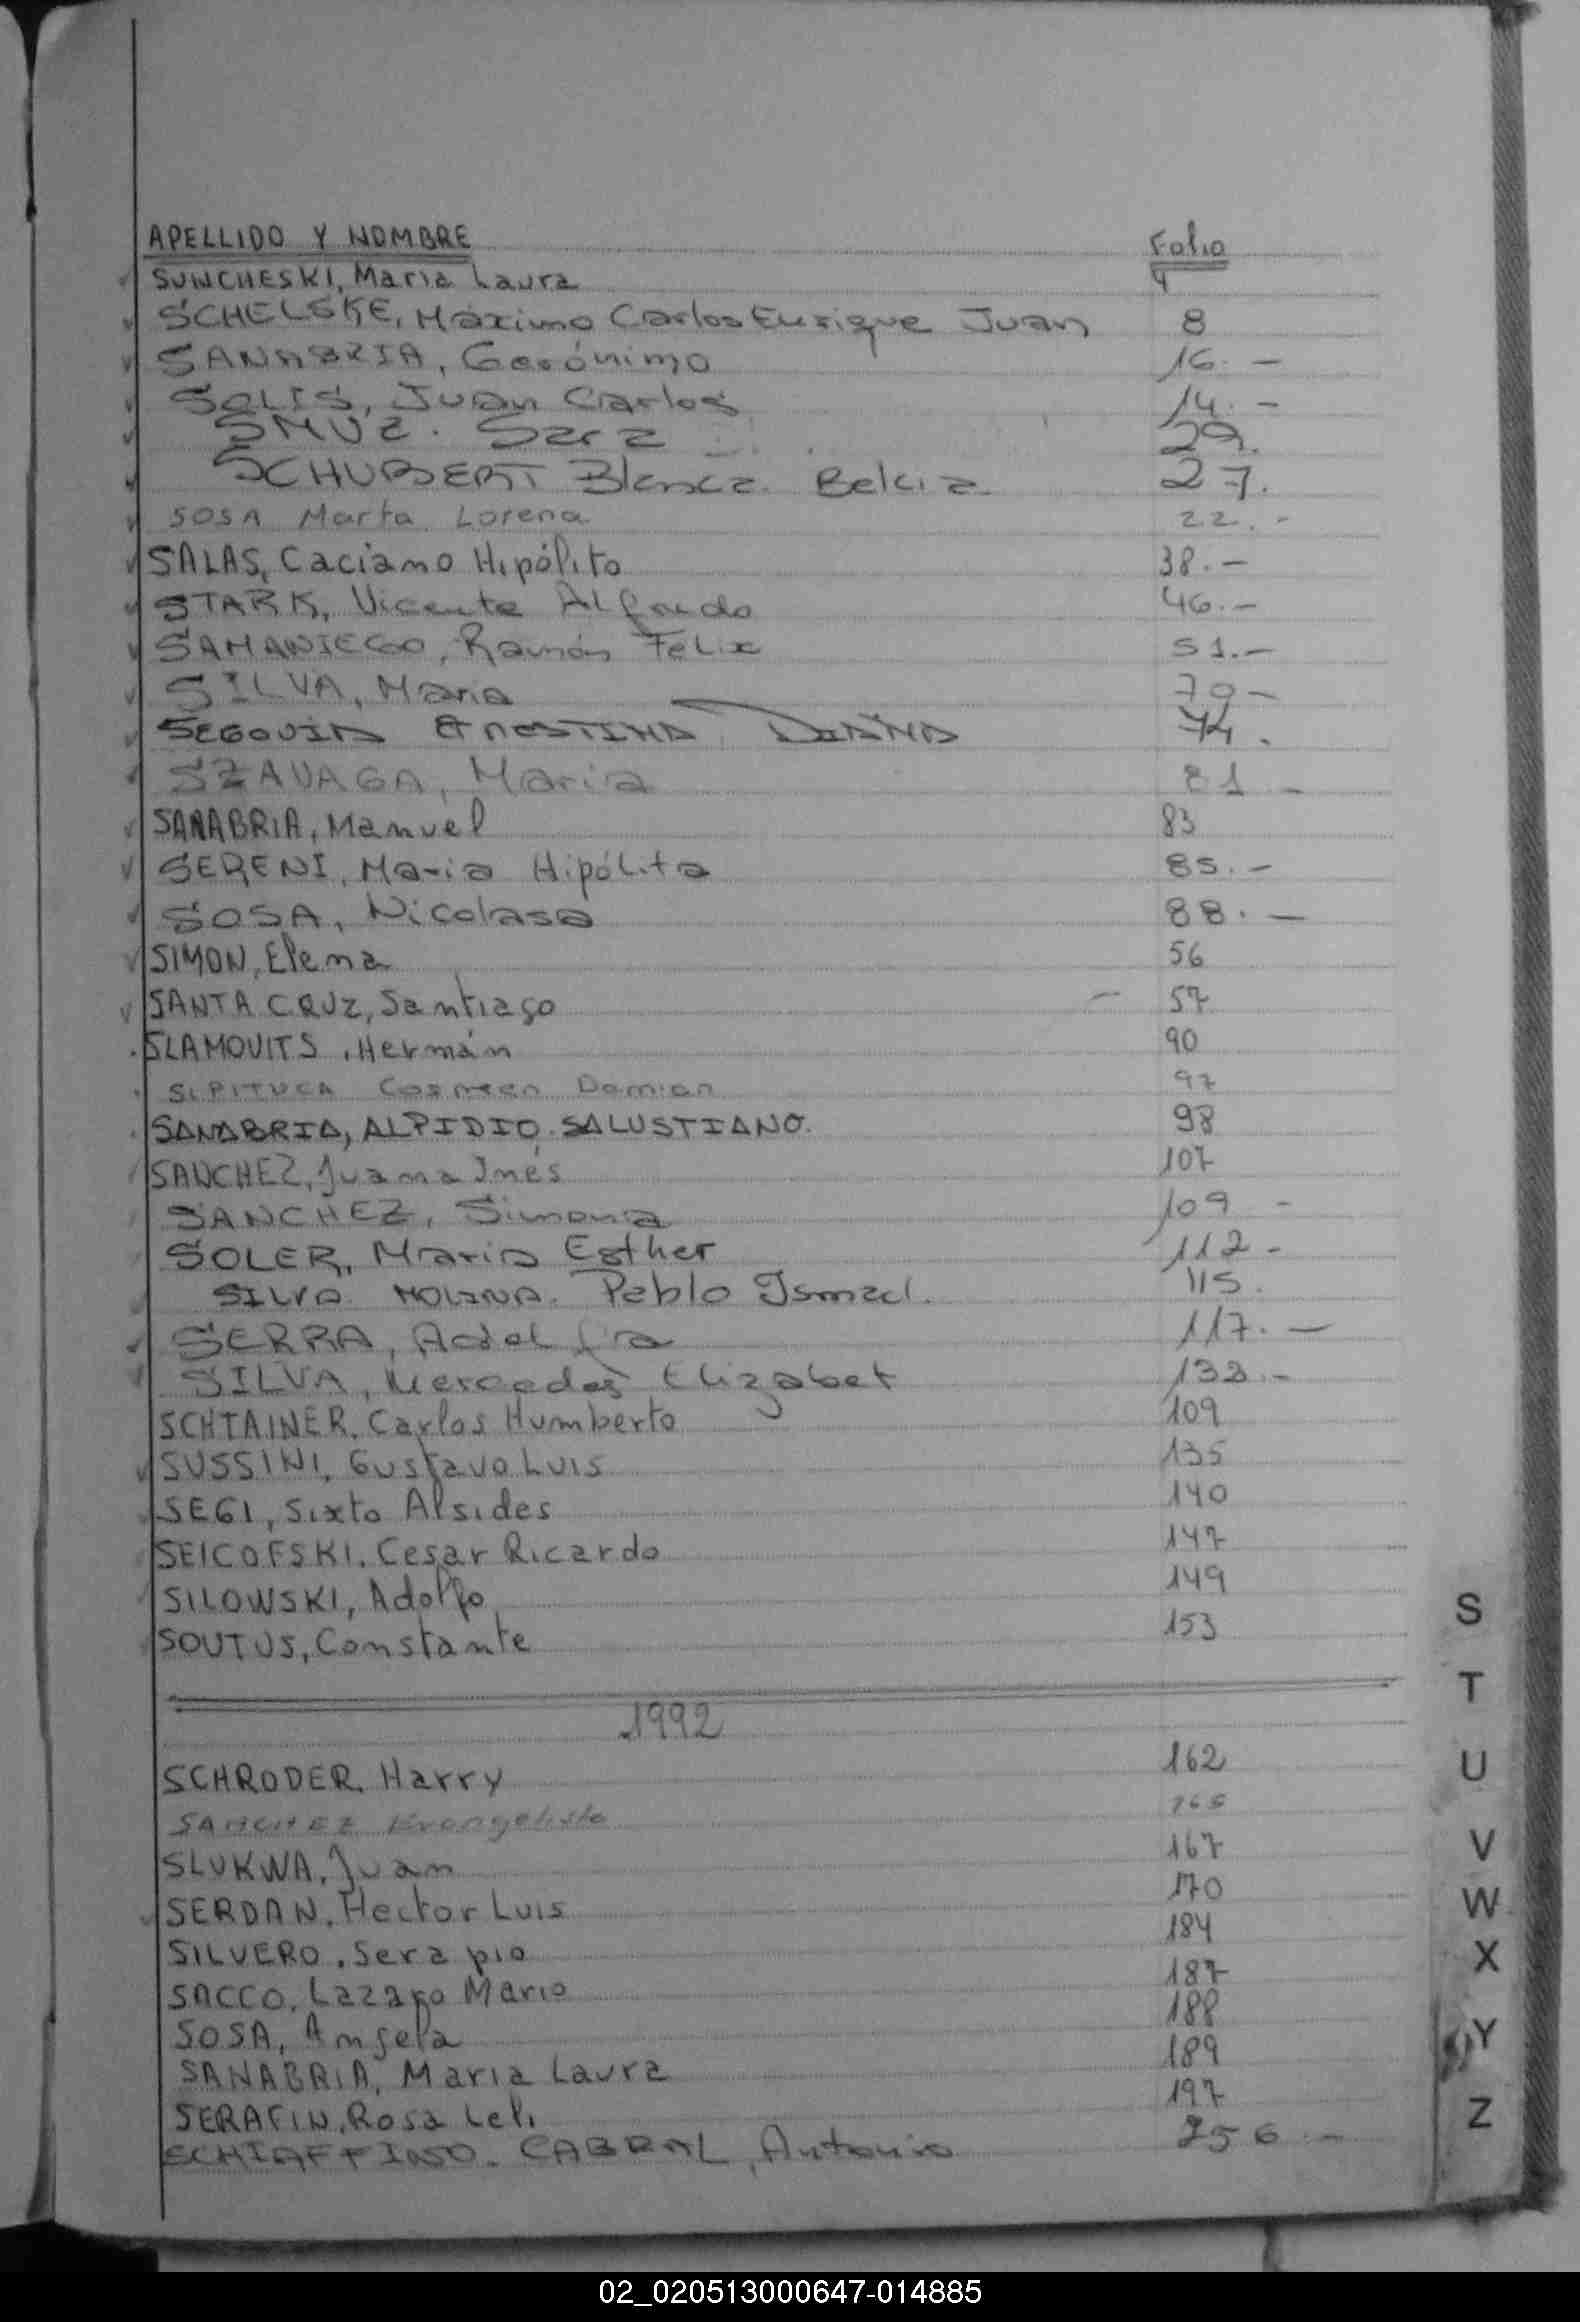 APELLIDO Y NOMBRE Folio
SUNCHESKI, Maria Laura 4
SCHELSKE, Máximo Carlos Enrique Juan 8
SANABRIA, Gerónimo 16.-
SOLIS, Juan Carlos 14.-
SMUZ. Sara 29.
SCHUBERT Blanca. Belcia 27.
SOSA Marta Lorena 22.-
SALAS, Caciano Hipólito 38.-
STARK, Vicente Alfredo 46.-
SAMANIEGO, Ramón Felix 51.-
SILVA, Maria 70-
SEGOVIA ERNESTINA DIANA 74.
SZAVAGA, Maria 81-
SANABRIA, Manuel 83
SERENI, Maria Hipólita 85.-
SOSA, Nicolasa 88.-
SIMON, Elena 56
SANTA CRUZ, Santiago - 57
SLAMOVITS, Hermán 90
Damian 97
SANABRIA, ALPIDIO SALUSTIANO. 98
SANCHEZ, Juana Inés 107
SANCHEZ, Simona 109-
SOLER, Maria Esther 112-
SILVA MOLINA. Pablo Ismael. 115.
SERRA, Adelfia 117.-
SILVA, Mercedes Elizabet 133.-
SCHTAINER, Carlos Humberto 109
SUSSINI, Gustavo Luis 135
SEGI, Sixto Alsides 140
SEICOFSKI, Cesar Ricardo 147
SILOWSKI, Adolfo 149
SOUTUS, Constante 153
1992
SCHRODER, Harry 162
SANCHEZ Evangelista 165
SLUKWA, Juan 167
SERDAN, Hector Luis 170
SILVERO, Serapio 184
SACCO, Lazaro Mario 187
SOSA, Angela 188
SANABRIA, Maria Laura 189
SERAFIN, Rosa Leli 197
SCHIAFFINO. CABRAL, Antonio 256.-
S
T
U
V
W
X
Y
Z
02_020513000647-014885